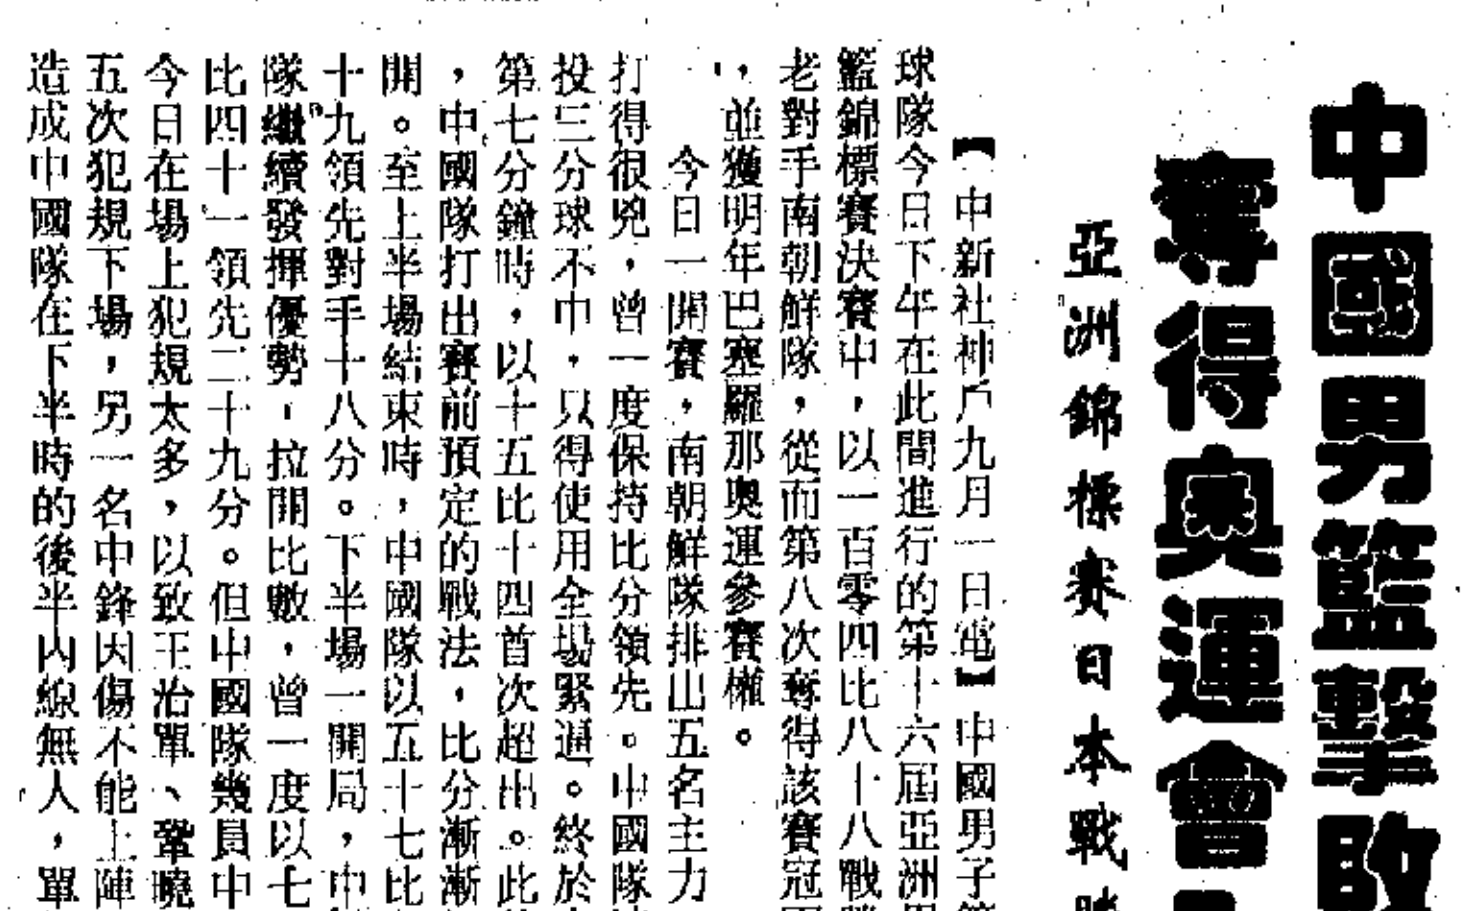 中國男籃擊敗
奪得奧運會
亞洲錦標賽日本戰勝
【中新社神戶九月一日電】中國男子籃
球隊今日下午在此間進行的第十六屆亞洲男
籃錦標賽決賽中，以一百零四比八十八戰勝
老對手南朝鮮隊，從而第八次奪得該賽冠軍
，並獲明年巴塞羅那奧運參賽權。
今日一開賽，南朝鮮隊排出五名主力
打得很兇，曾一度保持比分領先。中國隊
投三分球不中，只得使用全場緊逼。終於
第七分鐘時，以十五比十四首次超出。此
，中國隊打出賽前預定的戰法，比分漸漸
開。至上半場結束時，中國隊以五十七比
十九領先對手十八分。下半場一開局，中
隊繼續發揮優勢，拉開比數，曾一度以七
比四十一領先二十九分。但中國隊幾員中
今日在場上犯規太多，以致王治單、鞏曉
五次犯規下場，另一名中鋒因傷不能上陣
造成中國隊在下半時的後半內線無人，單